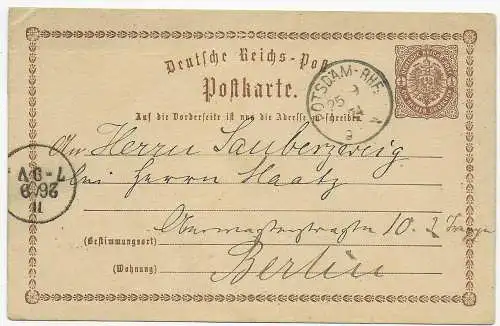 Deutsche Reichs-Post
Postkarte.
POTSDAM-RHE
25 9
74
9
Auf die Vorderseite ist nur die Adresse zu schreiben.
An Herrn Sauberzweig
bei Herrn Haatz
10. 2 Treppe
(Bestimmungsort)
Berlin
(Wohnung)
26 9
7-8V